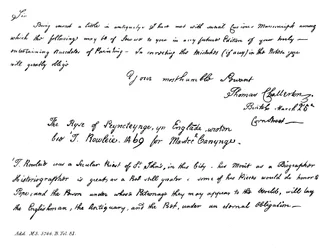 Sir
Being versed a little in antiquitys, I have met with several Curious Manuscripts among
which the following may be of Service to you in any future Edition of your truly
entertaining Anecdotes of Painting. In correcting the Mistakes (if any) in the Notes you
will greatly oblige
Your most humble Servant
Thomas Chatterton
Bristol March 25th
Corn Street
The Ryse of Peyncteynge, yn Englade, wroten
bie T. Rowleie. 1469 for Mastre Canynge.
T. Rowleie was a Secular Priest of St. John's, in this City. his Merit as a Biographer
Historiographer is great, as a Poet still greater. some of his Pieces would do honor to
Pope; and the Person under whose Patronage they may appear to the World, will lay
the Englishman, the Antiquary, and the Poet, under an eternal Obligation
Add. M.S. 5766. B. Fol. 51.